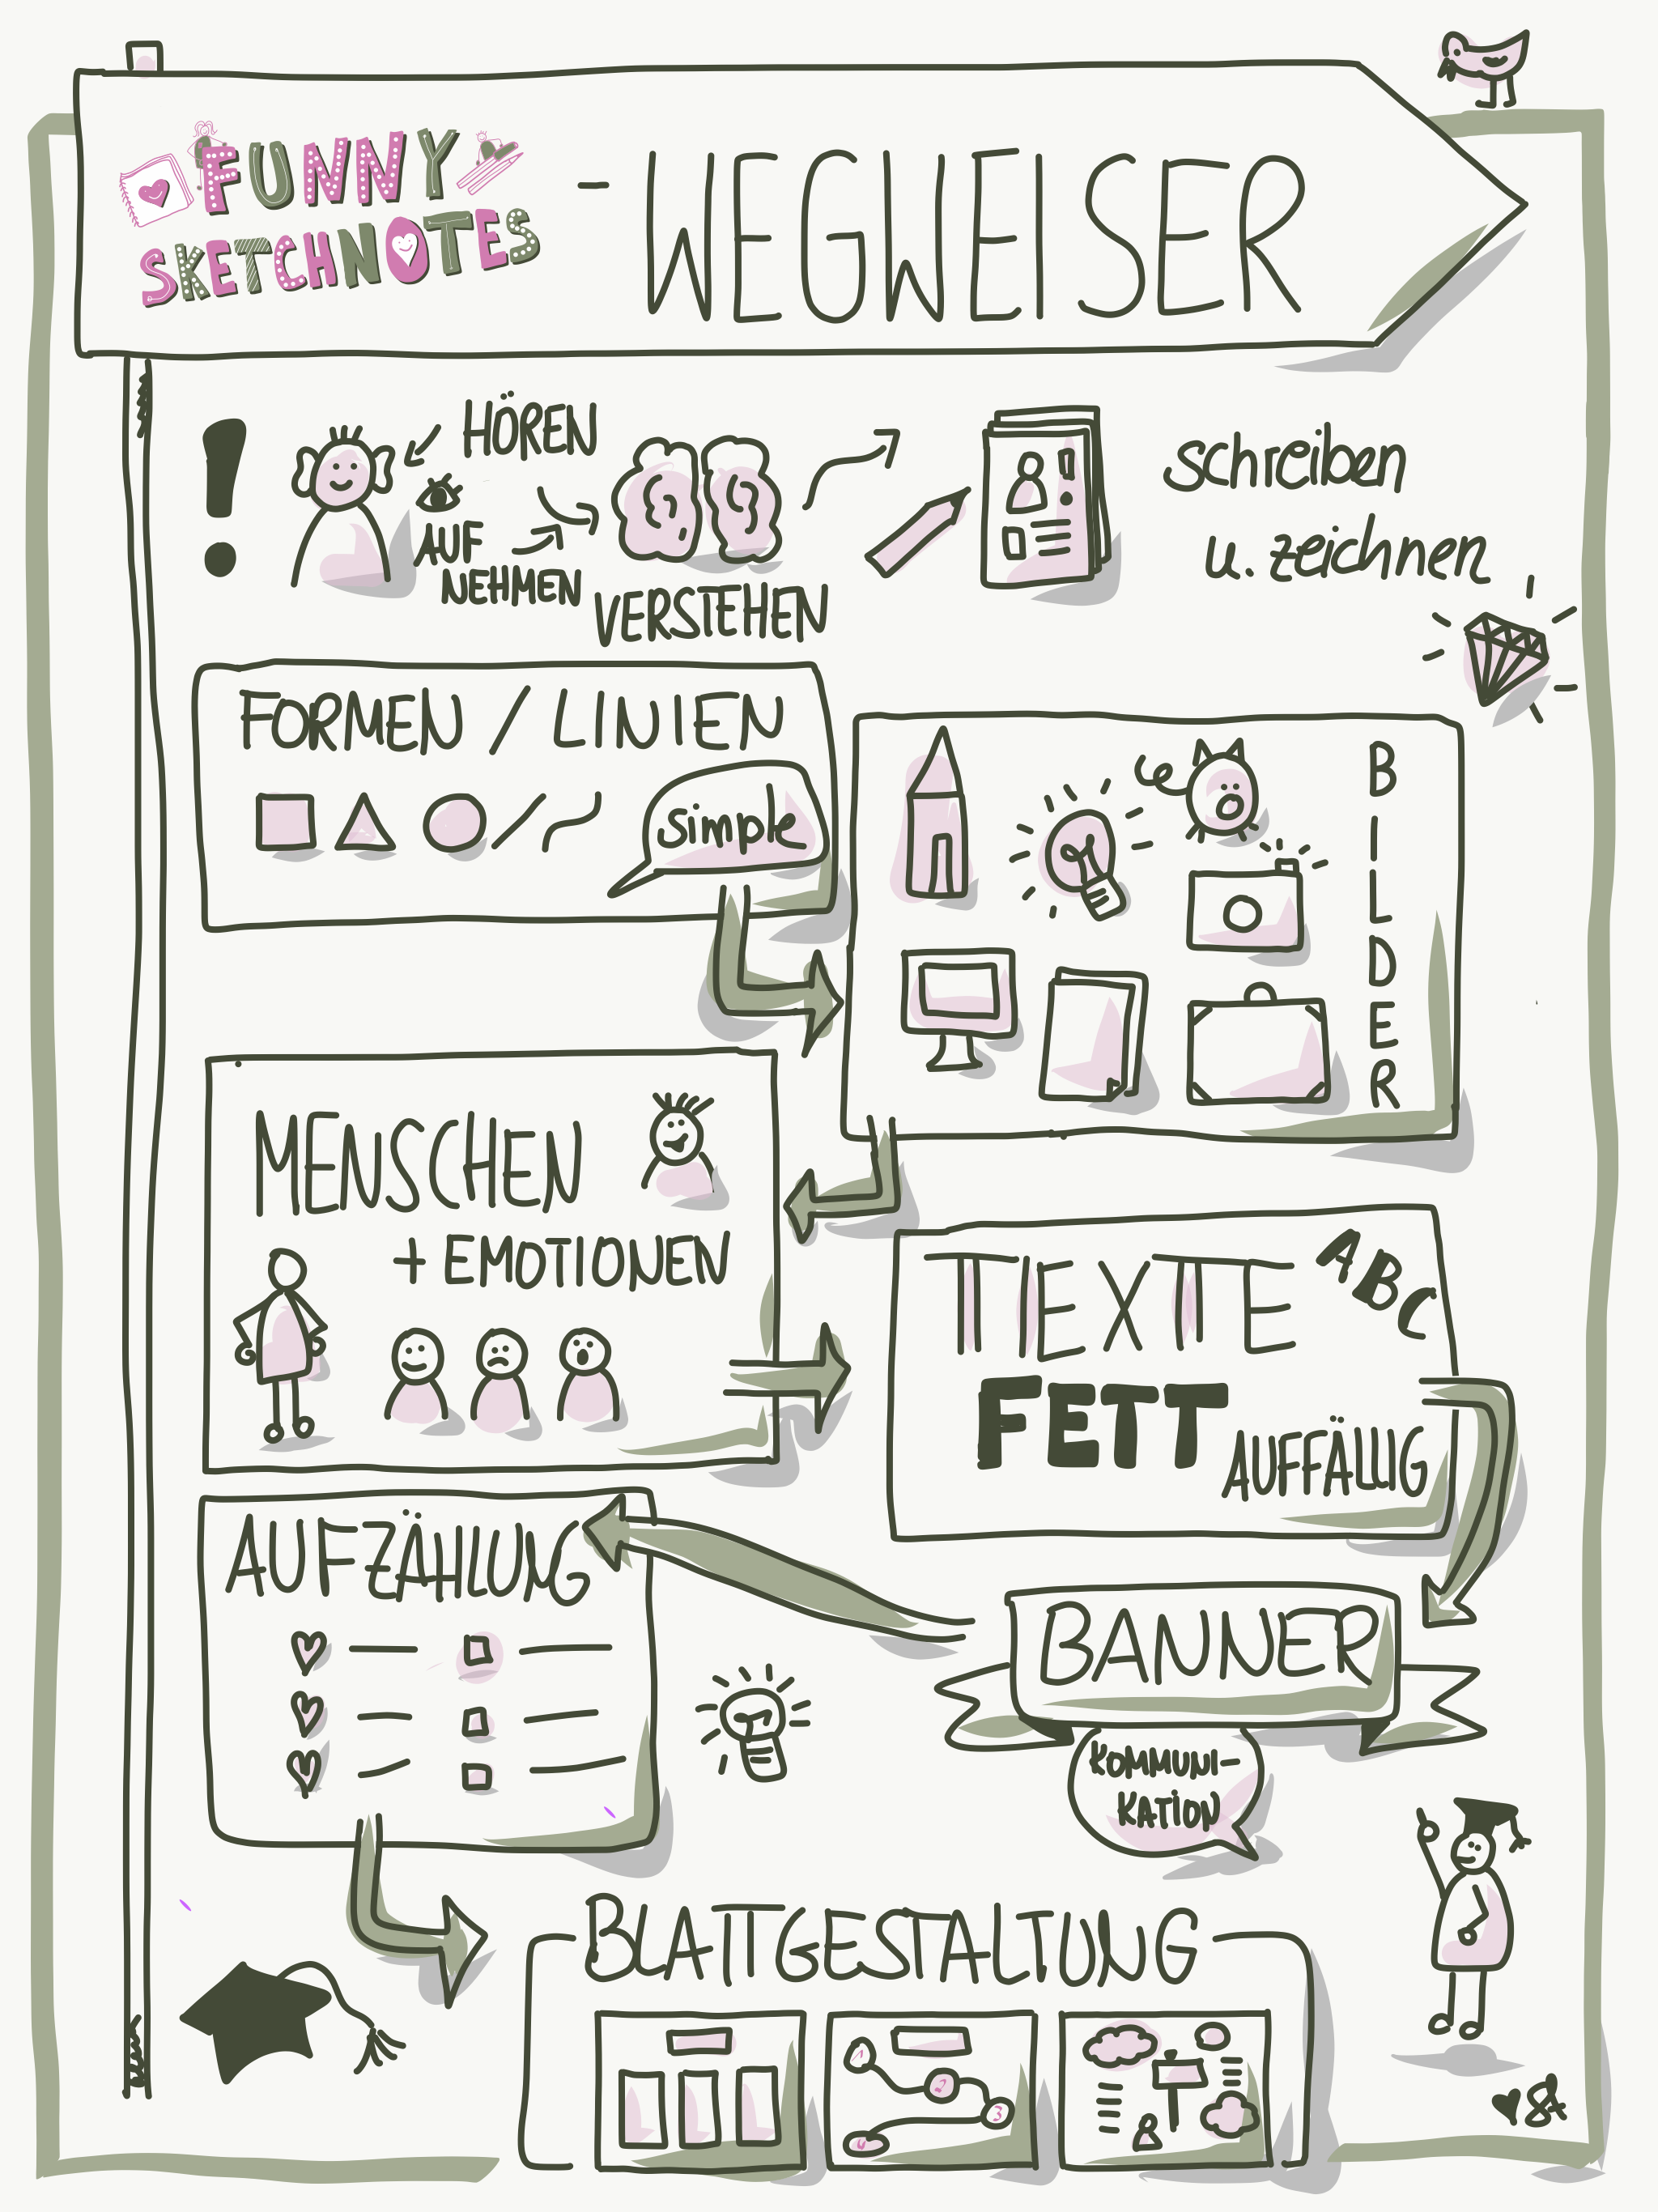 FUNNY
SKETCHNOTES
-WEGWEISER
!
HÖREN
AUF
NEHMEN
VERSTEHEN
schreiben
u. zeichnen
FORMEN / LINIEN
simple
BILDER
MENSCHEN
+ EMOTIONEN
TEXTE
ABC
FETT
AUFFÄLLIG
BANNER
KOMMUNI-
KATION
AUFZÄHLUNG
BLATTGESTALTUNG
1
2
3
4